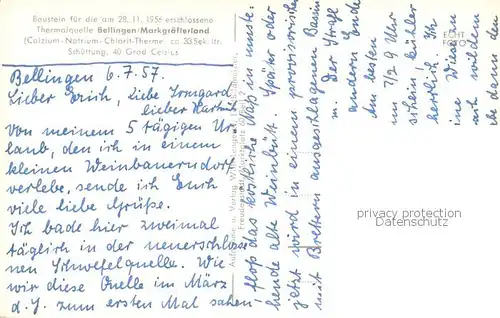 Baustein für die am 28. 11. 1956 erschlossene
Thermalquelle Bellingen/Markgräflerland
(Calzium-Natrium-Chlorit-Therme ca 33 Sek. ltr.
Schüttung, 40 Grad Celsius
Bellingen 6.7.57.
Lieber Erich, liebe Irmgard
lieber Hartmut
Von meinem 5 tägigen Ur-
laub, den ich in einem
kleinen Weinbauerndorf
verlebe, sende ich Euch
viele liebe Grüße.
Ich bade hier zweimal
täglich in der neuerschlosse-
nen Schwefelquelle. Wie
wir diese Quelle im März
d. J. zum ersten Mal sahen,
floß das köstliche Naß in
hende alte Weinbütt. Später oder
jetzt wird in einem provisorischen
mit Brettern ausgeschlagenen Bassin
u. der Straße
anderen Ende
Am besten
1/2 9 Uhr
schein, kühler
herrlich. Ich
ine
und milden
ECHT
FOTO
privacy protection watermark
Datenschutz Wasserzeichen